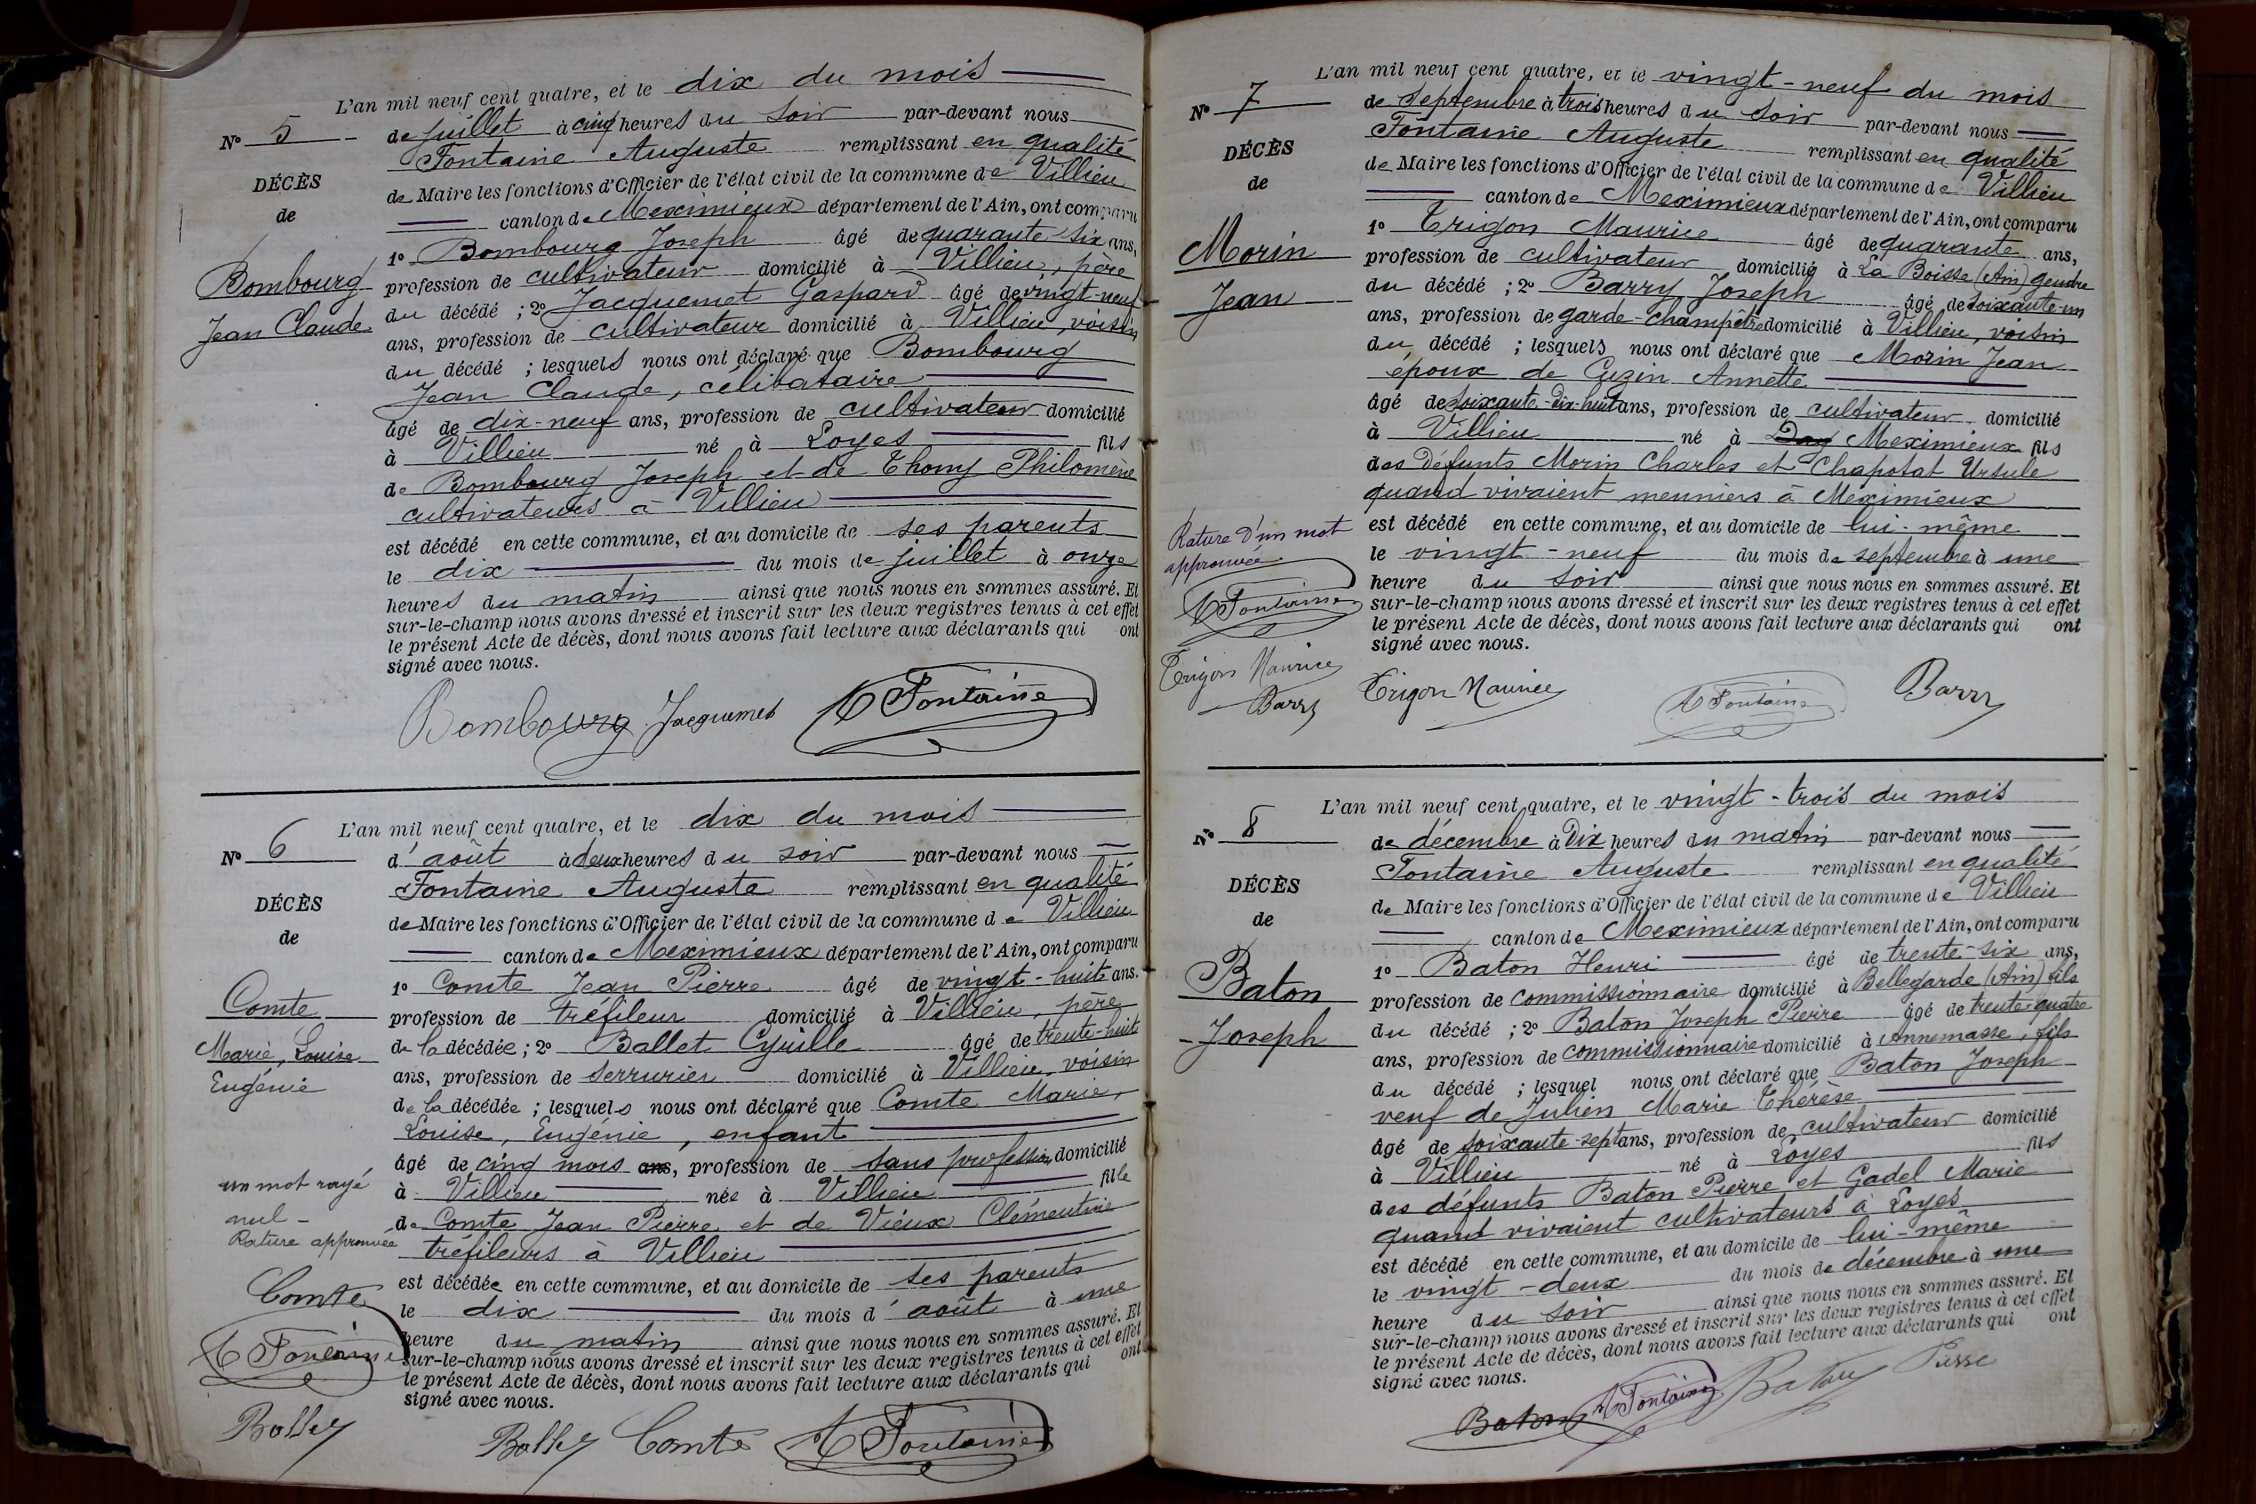 L'an mil neuf cent quatre, et le dix du mois
N° 5
de juillet à cinq heures du soir par-devant nous
Fontaine Auguste remplissant en qualité
DÉCÈS
de Maire les fonctions d'Officier de l'état civil de la commune de Villieu
de
canton de Meximieux département de l'Ain, ont comparu
1° Bombourg Joseph âgé de quarante-six ans,
Bombourg
profession de cultivateur domicilié à Villieu, père
du décédé ; 2° Jacquemet Gaspard âgé de vingt-neuf
Jean Claude
ans, profession de cultivateur domicilié à Villieu, voisin
du décédé ; lesquels nous ont déclaré que Bombourg
Jean Claude, célibataire
âgé de dix-neuf ans, profession de cultivateur domicilié
à Villieu né à Loyes fils
de Bombourg Joseph et de Thomy Philomène
cultivateurs à Villieu
est décédé en cette commune, et au domicile de ses parents
le dix du mois de juillet à onze
heures du matin ainsi que nous nous en sommes assuré. Et
sur-le-champ nous avons dressé et inscrit sur les deux registres tenus à cet effet
le présent Acte de décès, dont nous avons fait lecture aux déclarants qui ont
signé avec nous.
Bombourg Jacquemet A Fontaine
L'an mil neuf cent quatre, et le dix du mois
N° 6
d'août à deux heures du soir par-devant nous
Fontaine Auguste remplissant en qualité
DÉCÈS
de Maire les fonctions d'Officier de l'état civil de la commune de Villieu
de
canton de Meximieux département de l'Ain, ont comparu
1° Comte Jean Pierre âgé de vingt-huit ans.
Comte
profession de tréfileur domicilié à Villieu, père
Marie, Louise
de la décédée ; 2° Ballet Cyrille âgé de trente-huit
Eugénie
ans, profession de serrurier domicilié à Villieu, voisin
de la décédée ; lesquels nous ont déclaré que Comte Marie,
Louise, Eugénie, enfant
âgé de cinq mois ans, profession de sans profession domicilié
un mot rayé
à Villieu née à Villieu fille
nul -
de Comte Jean Pierre et de Vieux Clémentine
Rature approuvée
tréfileurs à Villieu
est décédée en cette commune, et au domicile de ses parents
Comte
le dix du mois d'août à une
heure du matin ainsi que nous nous en sommes assuré. Et
A Fontaine
sur-le-champ nous avons dressé et inscrit sur les deux registres tenus à cet effet
le présent Acte de décès, dont nous avons fait lecture aux déclarants qui ont
signé avec nous.
Ballet
Ballet Comte A Fontaine
L'an mil neuf cent quatre, et le vingt-neuf du mois
N° 7
de septembre à trois heures du soir par-devant nous
Fontaine Auguste remplissant en qualité
DÉCÈS
de Maire les fonctions d'Officier de l'état civil de la commune de Villieu
de
canton de Meximieux département de l'Ain, ont comparu
1° Trigon Maurice âgé de quarante ans,
Morin
profession de cultivateur domicilié à La Boisse (Ain) gendre
Jean
du décédé ; 2° Barry Joseph âgé de soixante-un
ans, profession de garde-champêtre domicilié à Villieu, voisin
du décédé ; lesquels nous ont déclaré que Morin Jean
époux de Cuzin Annette
âgé de soixante-dix-huit ans, profession de cultivateur domicilié
à Villieu né à Meximieux fils
des défunts Morin Charles et Chapotat Ursule
quand vivaient meuniers à Meximieux
Rature d'un mot
est décédé en cette commune, et au domicile de lui-même
approuvée
le vingt-neuf du mois de septembre à une
heure du soir ainsi que nous nous en sommes assuré. Et
A Fontaine
sur-le-champ nous avons dressé et inscrit sur les deux registres tenus à cet effet
le présent Acte de décès, dont nous avons fait lecture aux déclarants qui ont
signé avec nous.
Trigon Maurice
Barry
Trigon Maurice A Fontaine Barry
L'an mil neuf cent quatre, et le vingt-trois du mois
N° 8
de décembre à Dix heures du matin par-devant nous
Fontaine Auguste remplissant en qualité
DÉCÈS
de Maire les fonctions d'Officier de l'état civil de la commune de Villieu
de
canton de Meximieux département de l'Ain, ont comparu
1° Baton Henri âgé de trente-six ans,
Baton
profession de commissionnaire domicilié à Bellegarde (Ain) fils
du décédé ; 2° Baton Joseph Pierre âgé de trente-quatre
Joseph
ans, profession de commissionnaire domicilié à Annemasse, fils
du décédé ; lesquel nous ont déclaré que Baton Joseph
veuf de Julien Marie Thérèse
âgé de soixante-sept ans, profession de cultivateur domicilié
à Villieu né à Loyes fils
des défunts Baton Pierre et Gadel Marie
quand vivaient cultivateurs à Loyes
est décédé en cette commune, et au domicile de lui-même
le vingt-deux du mois de décembre à une
heure du soir ainsi que nous nous en sommes assuré. Et
sur-le-champ nous avons dressé et inscrit sur les deux registres tenus à cet effet
le présent Acte de décès, dont nous avons fait lecture aux déclarants qui ont
signé avec nous.
Baton A Fontaine Baton Pierre